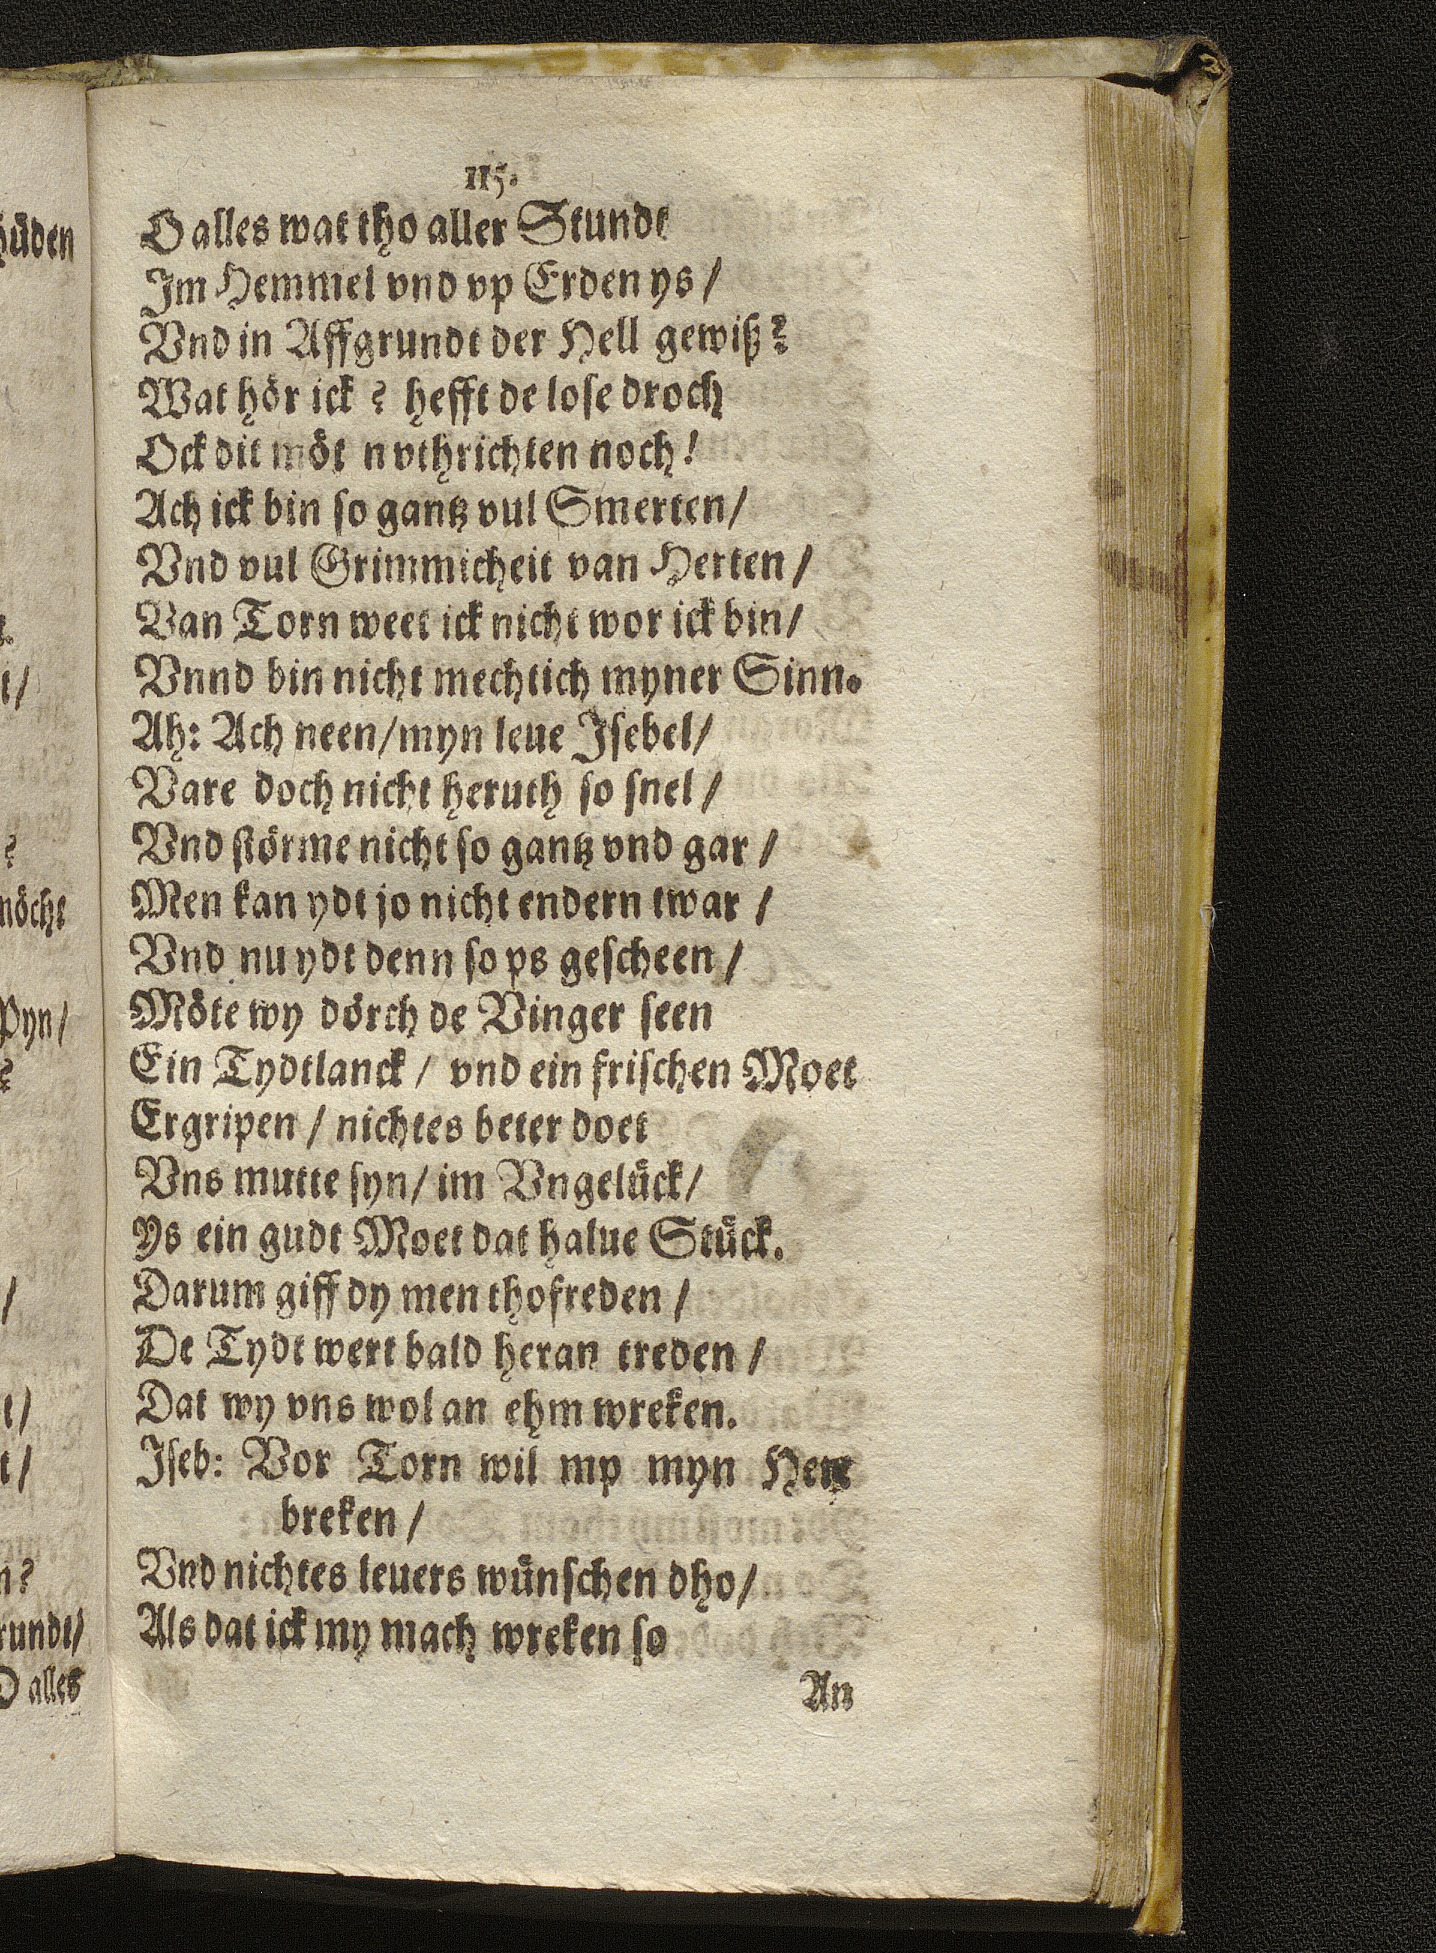 115.
O alles wat tho aller Stunde
Im Hemmel vnd vp Erden ys /
Vnd in Affgrundt der Hell gewiß?
Wat hör ick? hefft de lose droch
Ock dit möt n vthrichten noch!
Ach ick bin so gantz vul Smerten/
Vnd vul Grimmicheit van Herten /
Van Torn weet ick nicht wor ick bin/
Vnnd bin nicht mechtich myner Sinn.
Ah: Ach neen/myn leue Jsebel/
Vare doch nicht heruth so snel /
Vnd störme nicht so gantz vnd gar /
Men kan ydt jo nicht endern twar /
Vnd nu ydt denn so ys gescheen /
Möte wy dörch de Vinger seen
Ein Tydtlanck / vnd ein frischen Moet
Ergripen / nichtes beter doet
Vns mutte syn/ im Vngelück/
Ys ein gudt Moet dat halue Stück.
Darum giff dy men thofreden /
De Tydt wert bald heran treden /
Dat wy vns wol an ehm wreken.
Jseb: Vor Torn wil my myn Hert
breken /
Vnd nichtes leuers wünschen dho/
Als dat ick my mach wreken so
An
hüden
t/
?
möcht
Pyn/
?
/
t/
t/
n?
rundt/
O alles